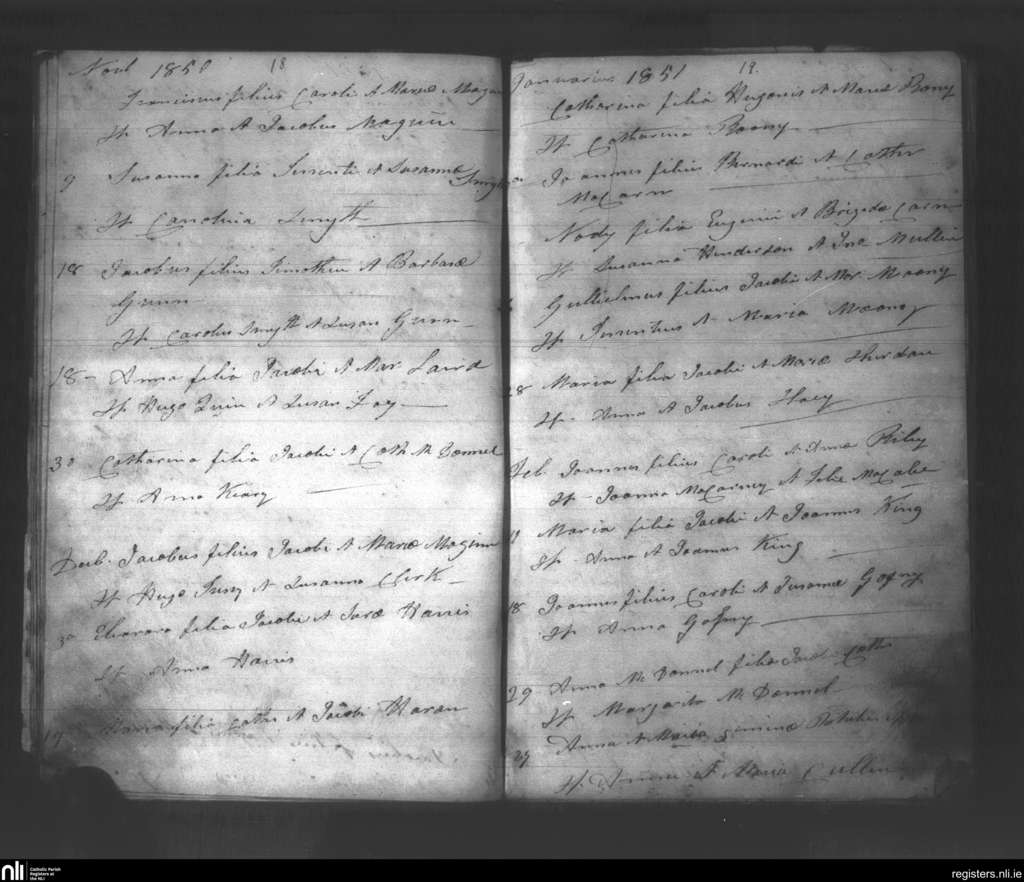 Novb 1850 18
Franciscus filius Caroli et Mariae Maguire
Sp Anna et Jacobus Maguire
9 Susanna filia Terrenti et Susanna Smyth
Sp Carolina Smyth
18 Jacobus filius Timothei et Barbarae
Gunn
Sp Carolus Smyth et Susan Gunn
18 Anna filia Jacobi et Mar Laird
Sp Hugo Quin et Susan Foy
30 Catharina filia Jacobi et Cath Mc Donnel
Sp Anna Keary
Decb. Jacobus filius Jacobi et Mariae Maginn
Sp Hugo et Susanna Clerk
30 Eleanora filia Jacobi et Harris
Sp Anna Harris
filia Cath et Jacobi
Januarius 1851 19.
Catharina filia Hugonis et Mariae Roony
Sp Catharina Roony
Joannes filius Bernardi et Cather
McCarn
filia Eugenii et Brigidae Carn
Sp Susanna Henderson et Mullin
Gullielmus filius Jacobi et Mar Moony
Sp Terrentius et Maria Moony
28 Maria filia Jacobi et Mariae Sherdan
Sp Anna et Jacobus
Feb. Joannes filius Caroli et Annae Riley
Sp Joanna et McCabe
Maria filia Jacobi et Joannae King
Sp Anna et Joannes King
18 Joannes filius Caroli et Susannae Gafny
Sp Anna Gafny
29 Anna Mc Donnel filia Cath
Sp Margarita Mc Donnel
27 Anna et Maria geminae
Sp et Maria Cullen
nli
Catholic Parish
Registers at
the NLI
registers.nli.ie